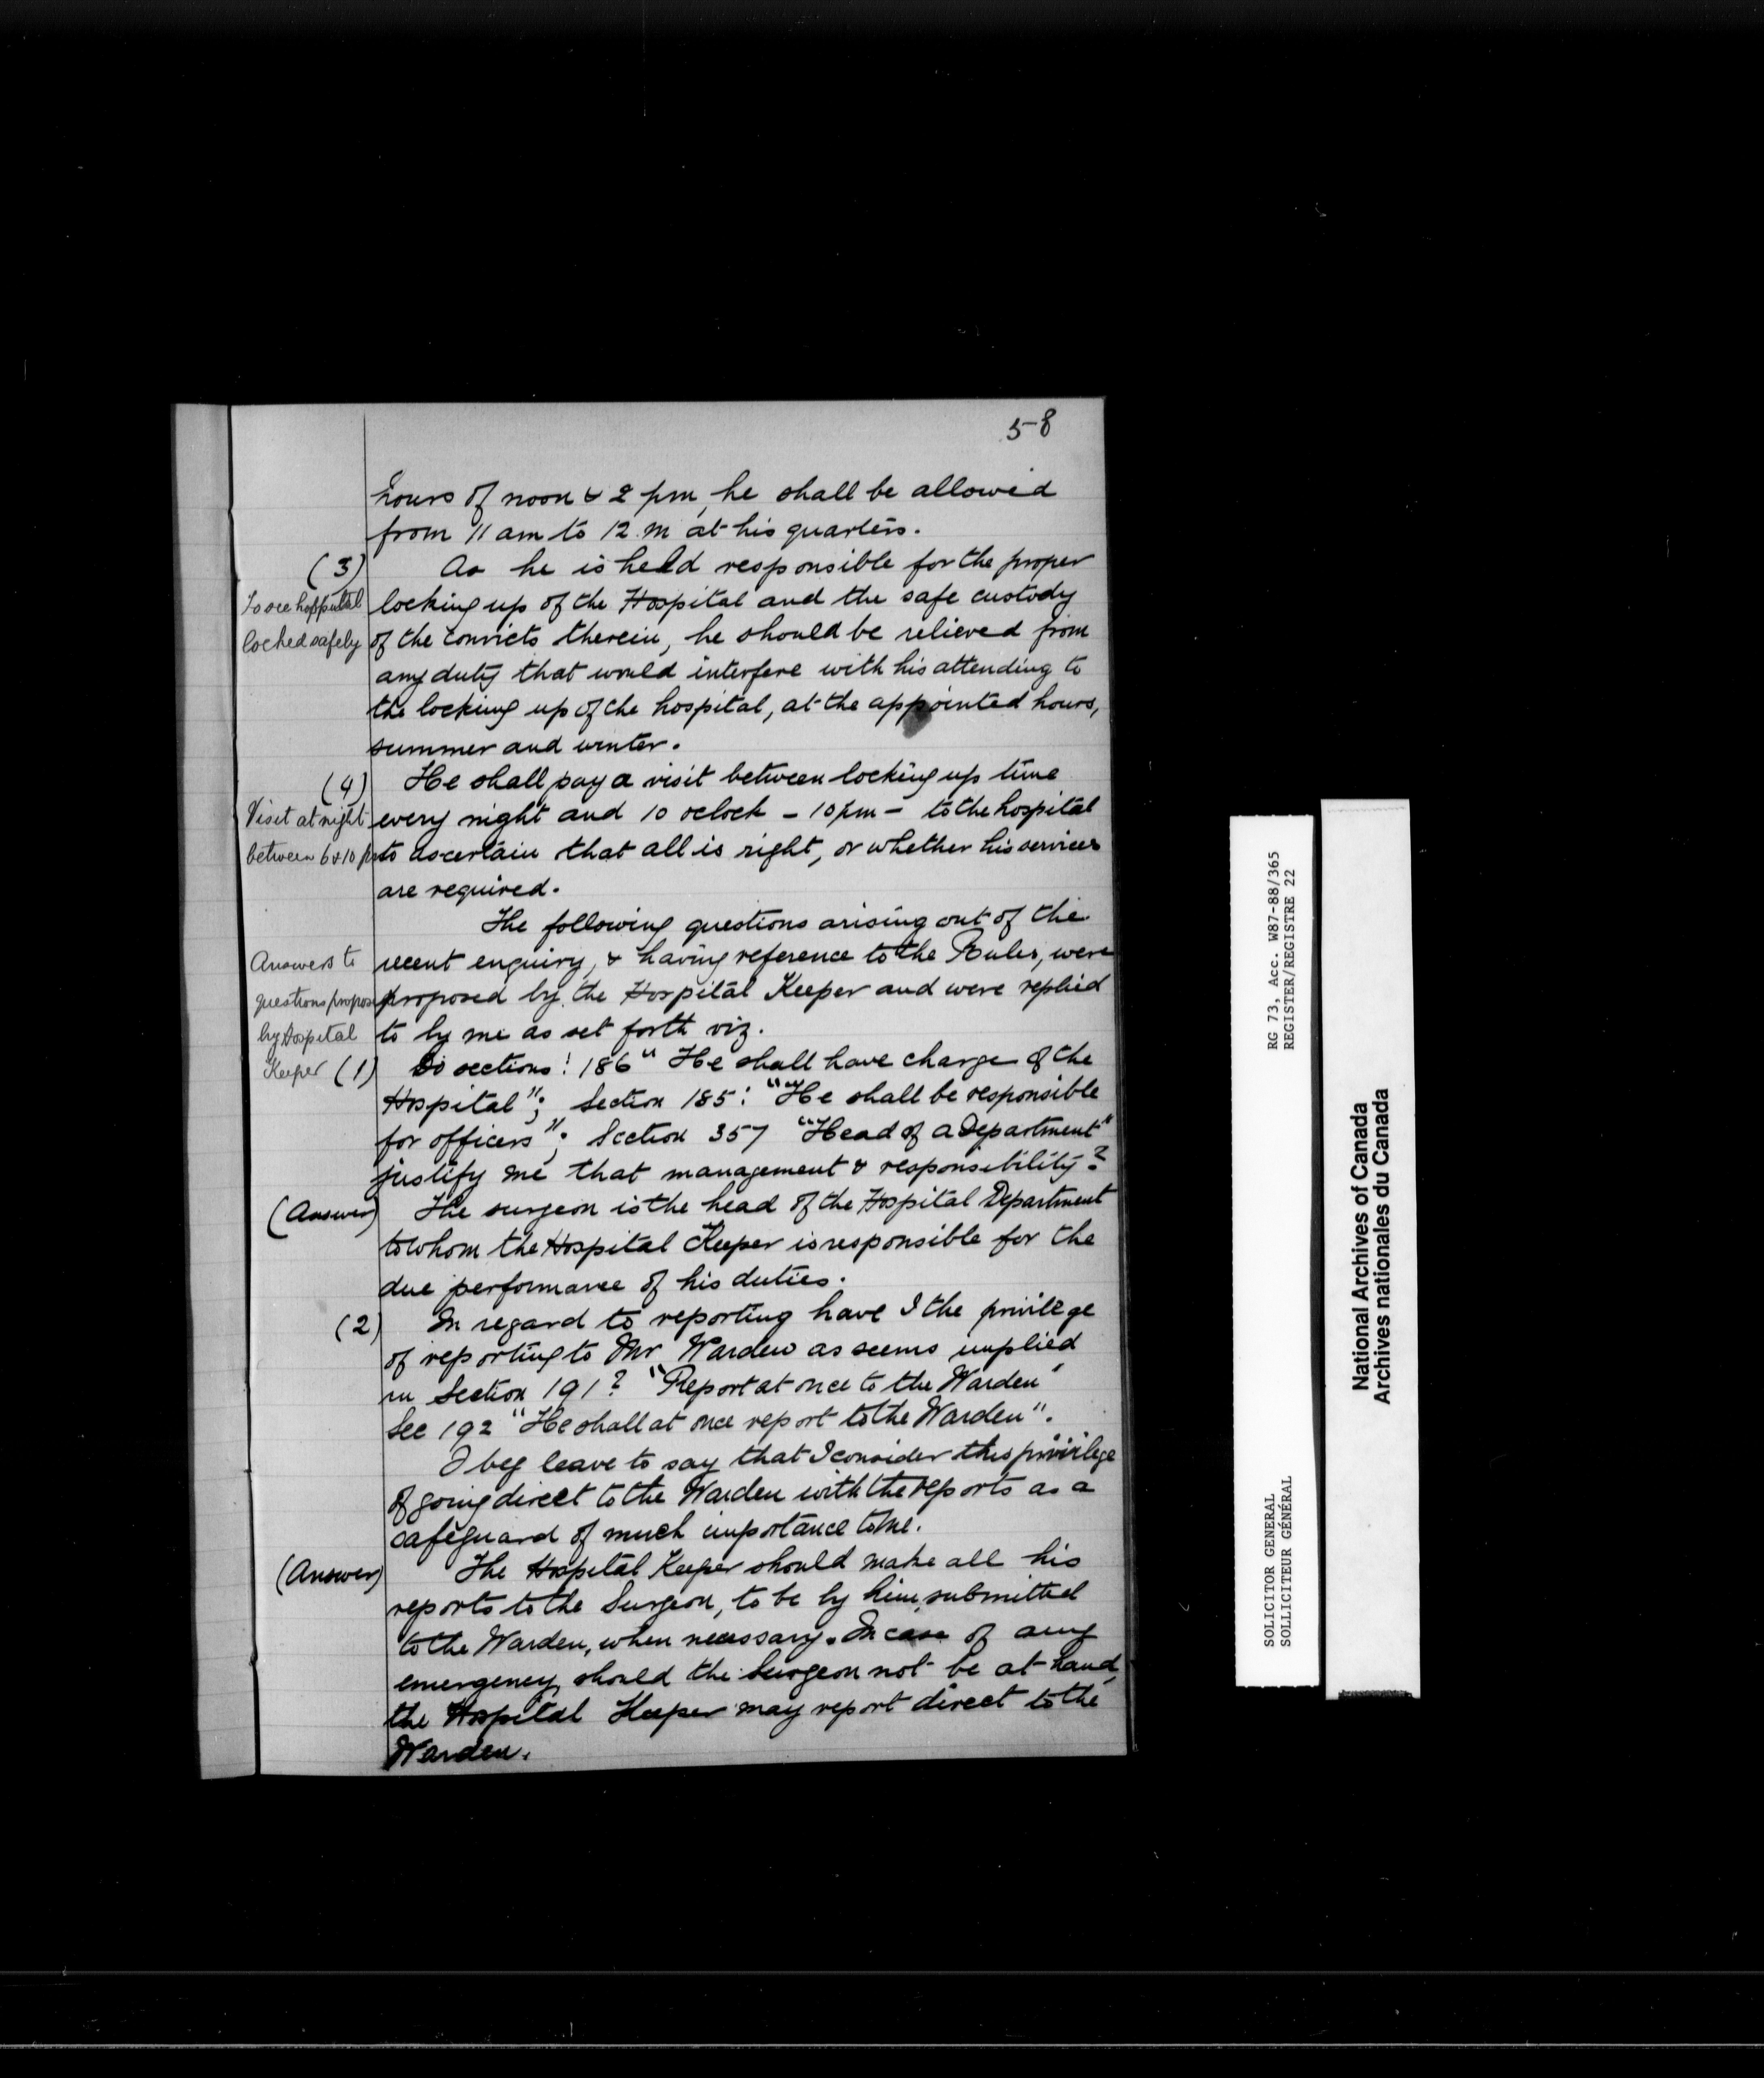 58
hours of noon & 2 pm, he shall be allowed
from 11 am to 12 m at his quarters.
(3)
To see hospital
locked safely
As he is held responsible for the proper
locking up of the Hospital and the safe custody
of the convicts therein, he should be relieved from
any duty that would interfere with his attending to
the locking up of the hospital, at the appointed hours,
summer and winter.
(4)
Visit at night
between 6 & 10 pm
He shall pay a visit between locking up time
every night and 10 oclock - 10 pm - to the hospital
to ascertain that all is right, or whether his services
are required.
Answers to
questions propos
by Hospital
Keeper
The following questions arising out of the
recent enquiry, & having reference to the Rules, were
proposed by the Hospital Keeper and were replied
to by me as set forth viz.
(1) Do sections: 186 "He shall have charge of the
Hospital"; Section 185: "He shall be responsible
for officers"; Section 357 "Head of a Department"
justify me that management & responsibility?
(Answer) The surgeon is the head of the Hospital Department
to whom the Hospital Keeper is responsible for the
due performance of his duties.
(2) In regard to reporting have I the privilege
of reporting to Mr Warden as seems implied
in Section 191? "Report at once to the Warden"
Sec 192 "He shall at once report to the Warden".
I beg leave to say that I consider this privilege
of going direct to the Warden with the reports as a
safeguard of much importance to me.
(Answer) The Hospital Keeper should make all his
reports to the Surgeon, to be by him, submitted
to the Warden, when necessary. In case of any
emergency, should the Surgeon not be at hand,
the Hospital Keeper may report direct to the
Warden.
RG 73, Acc. W87-88/365
REGISTER/REGISTRE 22
SOLICITOR GENERAL
SOLLICITEUR GÉNÉRAL
National Archives of Canada
Archives nationales du Canada